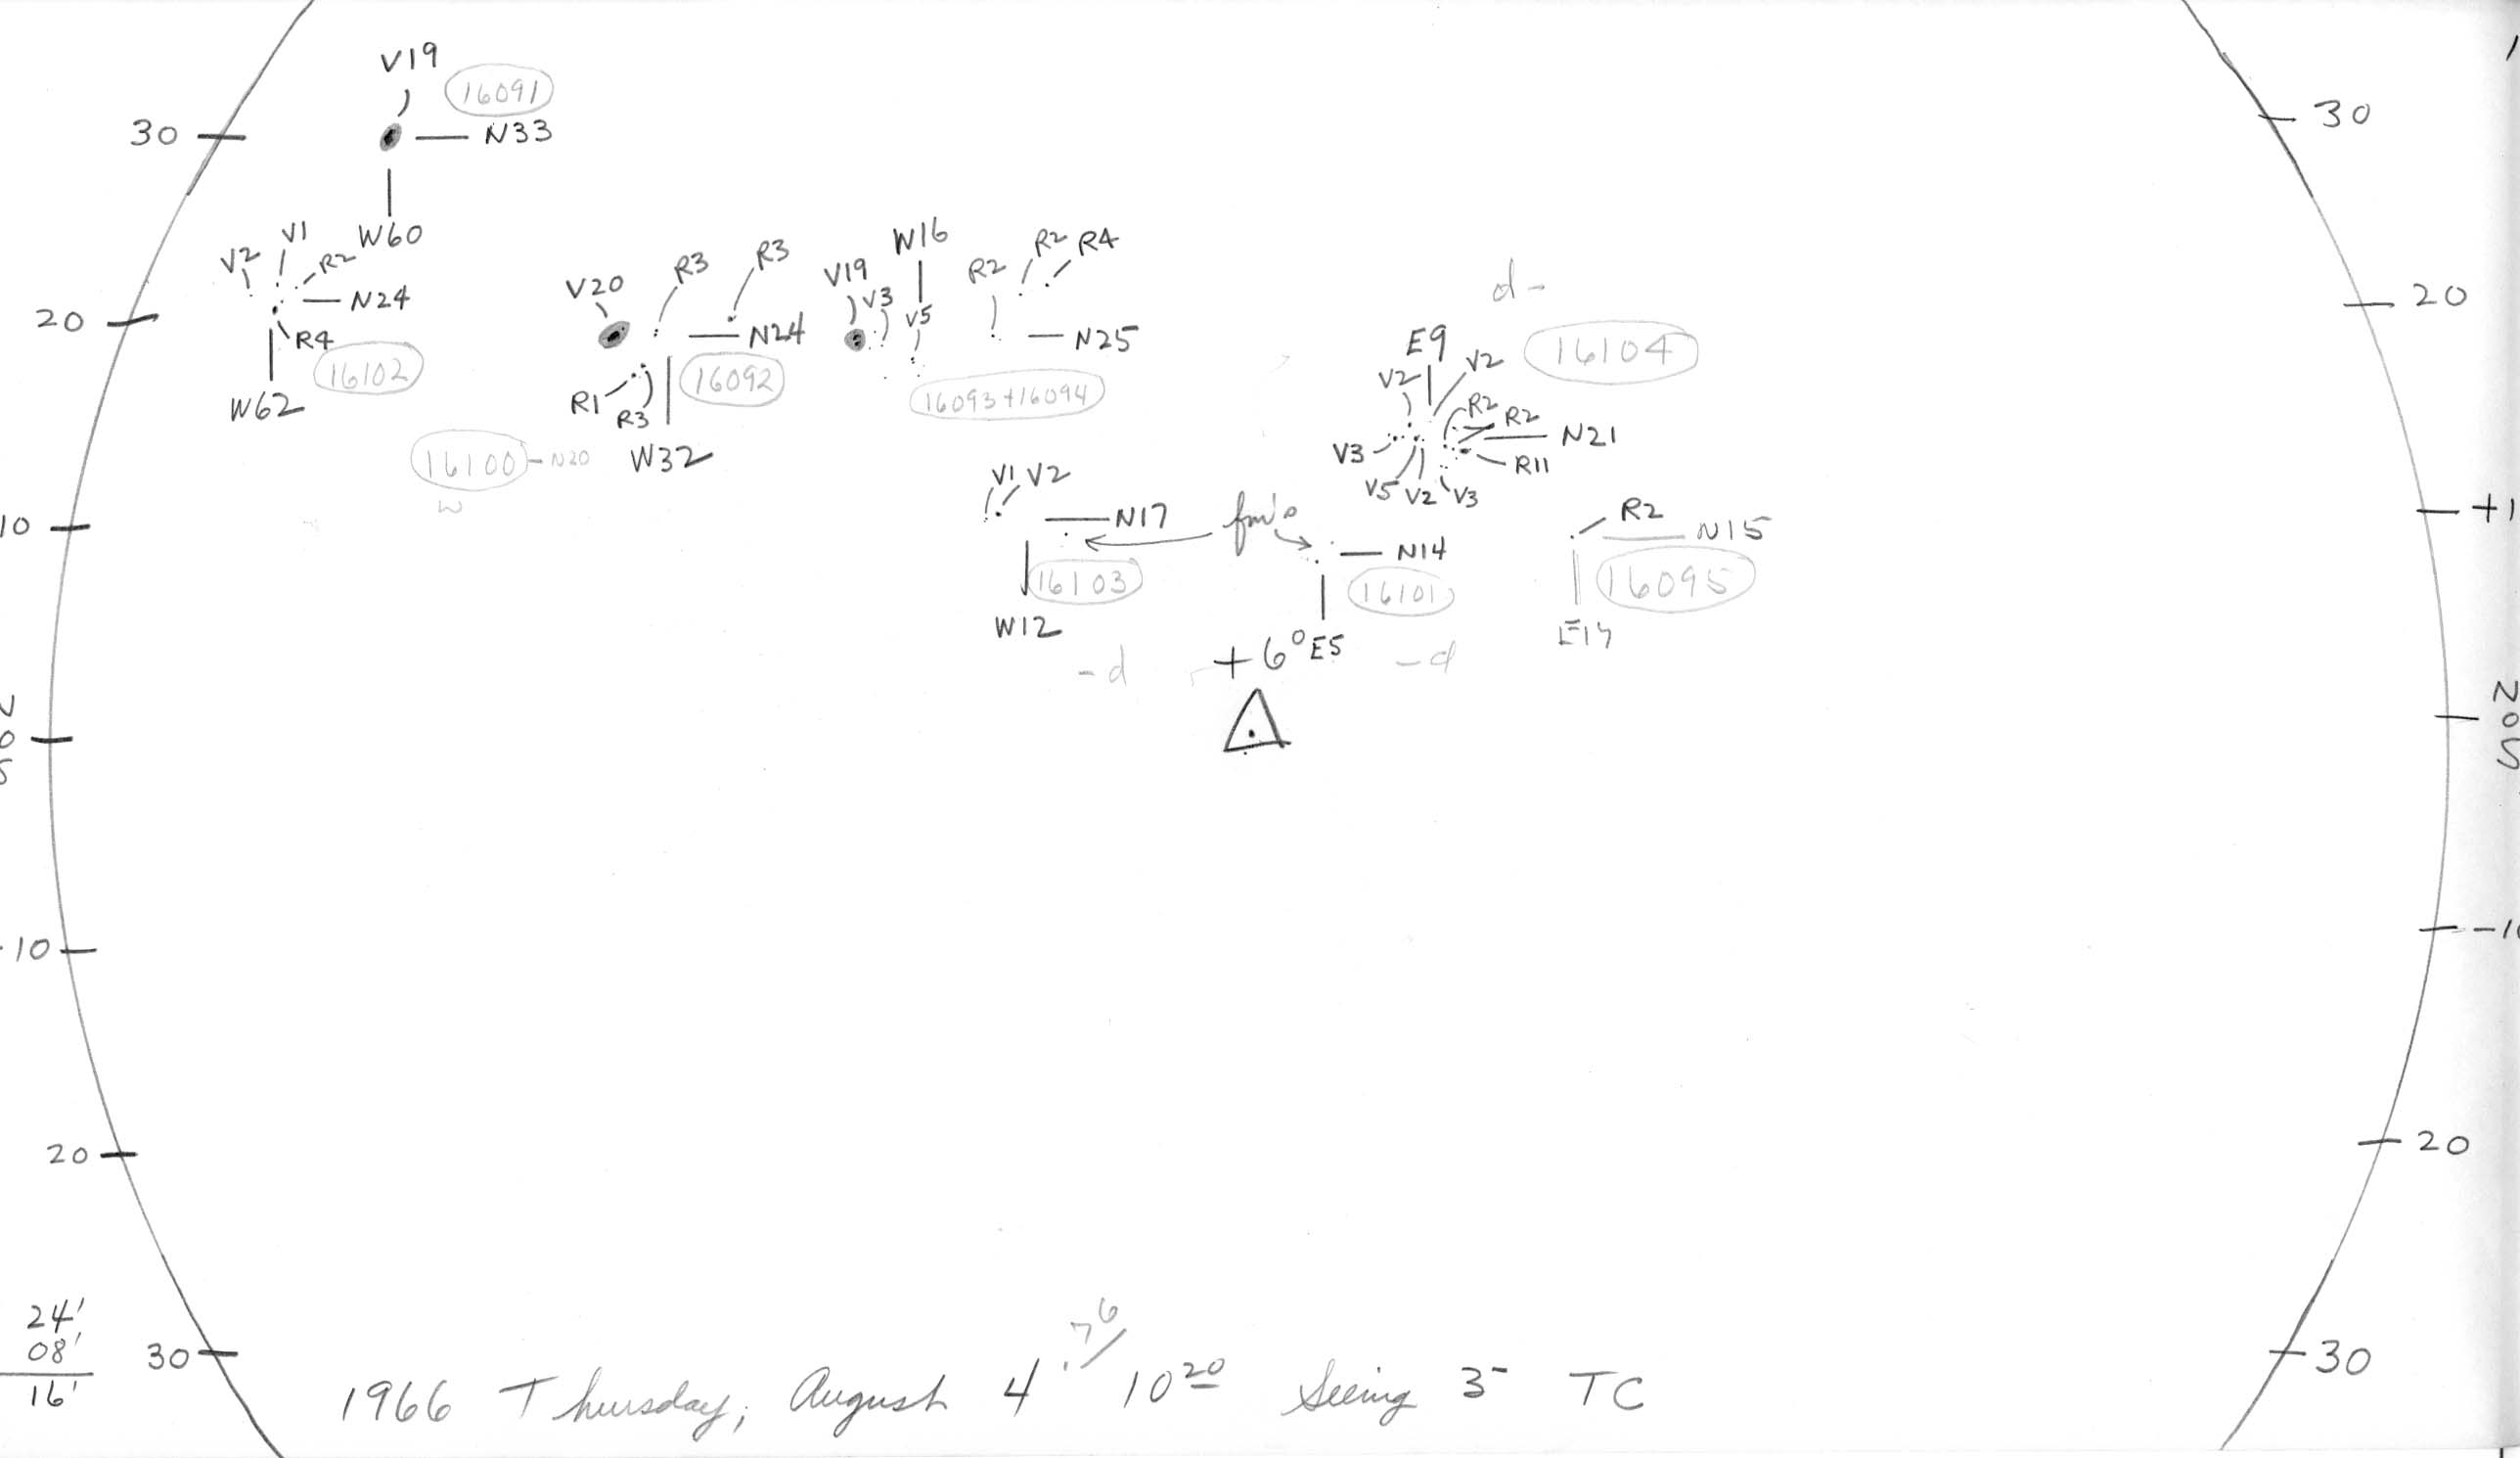 V19
16091
30
N33
30
W60
V2
V1
R2
N24
20
R4
16102
W62
V20
R3
R3
N24
R1
R3
16092
W32
16100 - N20
W
V19
V3
W16
V5
R2
R2
R4
N25
16093+16094
d-
20
E9
16104
V2
V2
R2
R2
N21
V3
R11
V5
V2
V3
V1
V2
10
N17
fm's
N14
R2
N15
+1
16103
16101
16095
W12
+6°
E5
-d
-d
N
O
S
O
S
10
-1
20
20
24'
08'
16'
30
30
1966 Thursday, August 4 .76/ 10 20 Seeing 3- TC